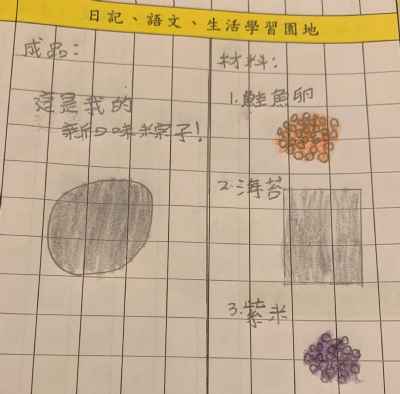 日記、語文、生活學習園地
成品：
這是我的
新口味粽子！
材料：
1.鮭魚卵
2.海苔
3.紫米